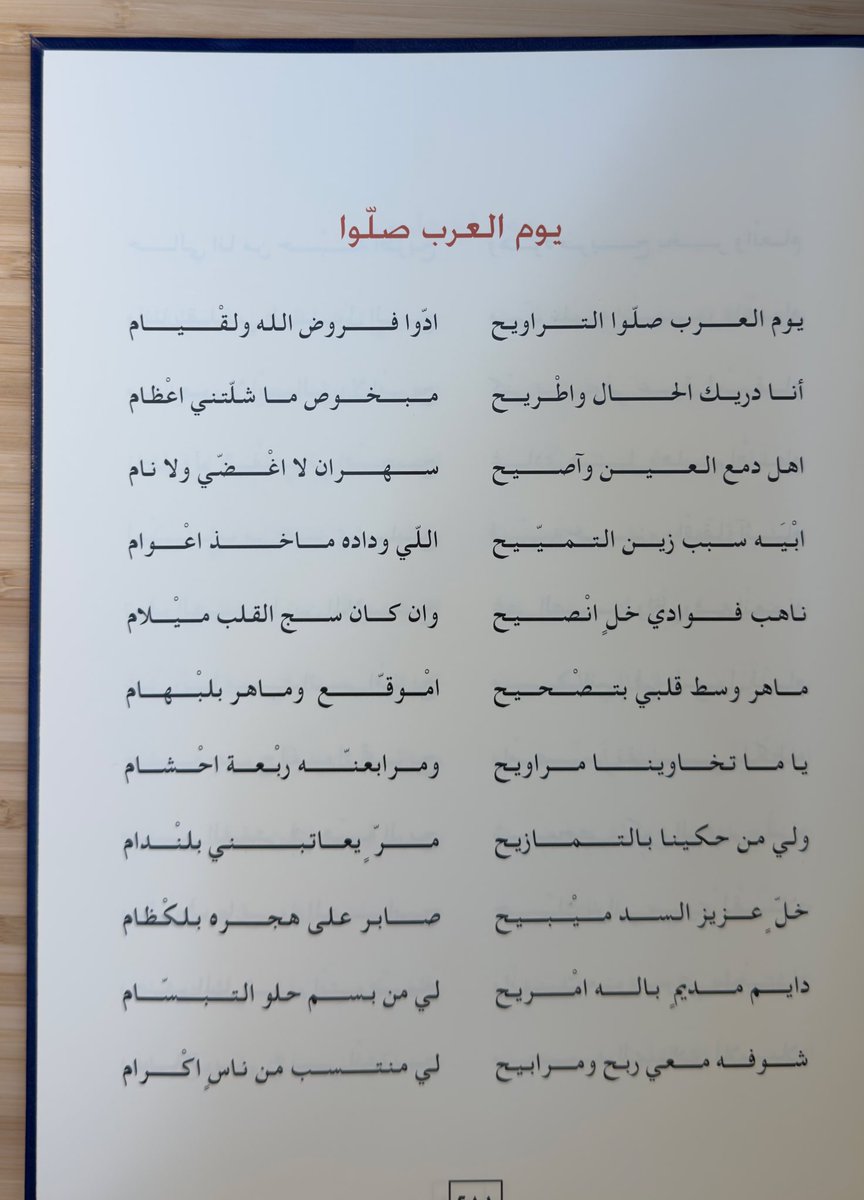 يوم العرب صلّوا
يوم العرب صلّوا التراويح ادّوا فروض الله ولقْيام
أنا دريك الحال واطْريح مبخوص ما شلّتني اعْظام
اهل دمع العين وآصيح سهران لا اغْضّي ولا نام
ابْيَه سبب زين التميّيح اللّي وداده ماخذ اعْوام
ناهب فوادي خلٍ انْصيح وان كان سج القلب ميْلام
ماهر وسط قلبي بتصْحيح امْوقّع وماهر بلبْهام
يا ما تخاوينا مراويح ومرابعنّه ربْعة احْشام
ولي من حكينا بالتمازيح مرّ ٍ يعاتبني بلنْدام
خلّ ٍ عزيز السد ميْبيح صابر على هجره بلكْظام
دايم مديمٍ باله امْريح لي من بسم حلو التبسّام
شوفه معي ربح ومرابيح لي منتسب من ناسٍ اكْرام